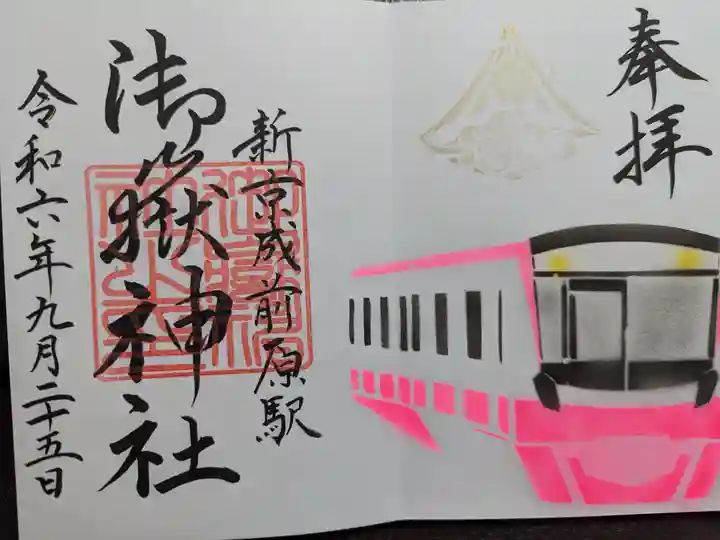 奉拝
新京成前原駅
御嶽神社
令和六年九月二十五日